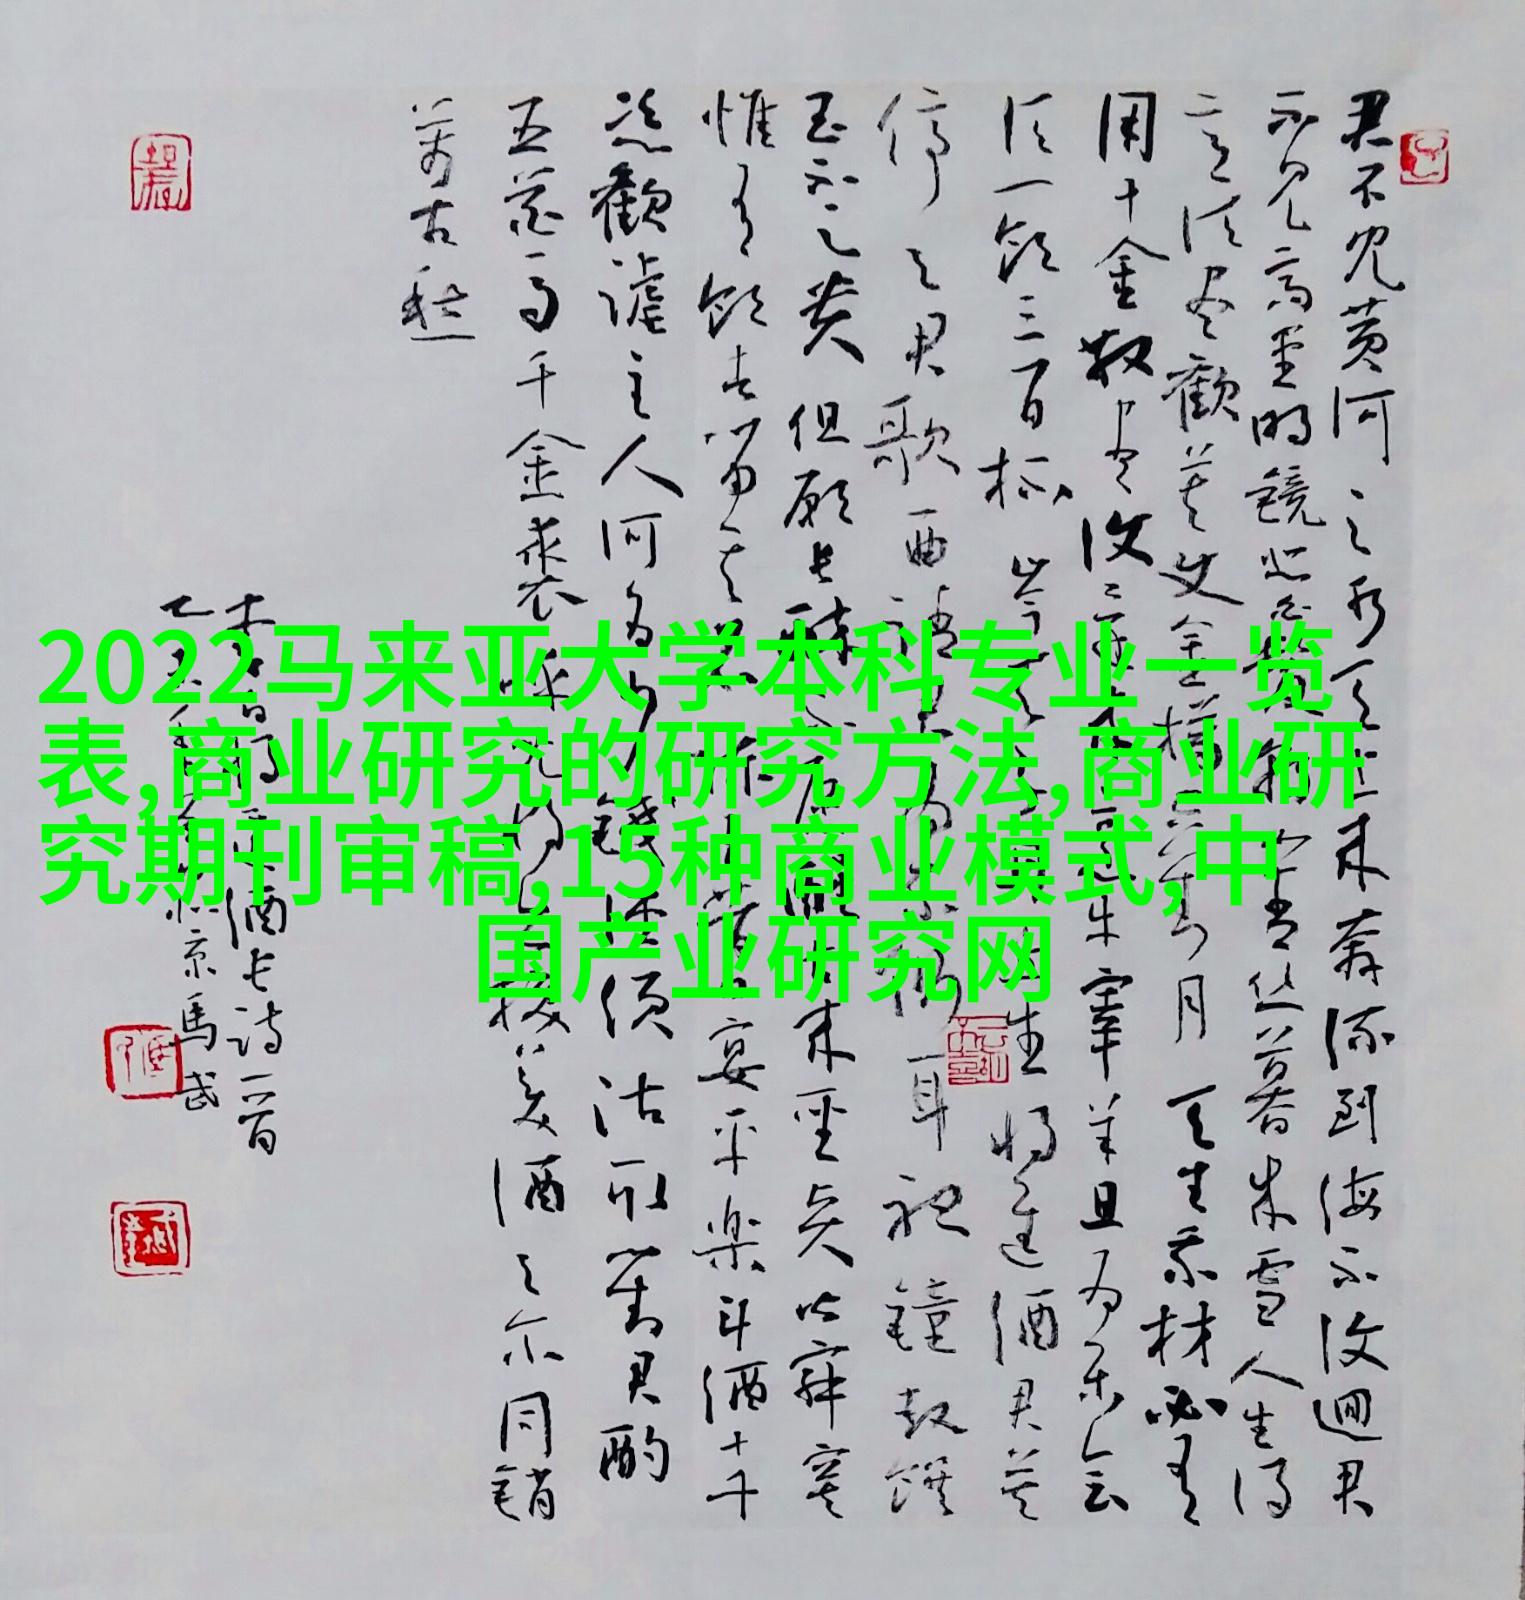 2022马来亚大学本科专业一览
表,商业研究的研究方法,商业研
究期刊审稿,15种商业模式,中
国产业研究网
君不見黄河之水天上来奔流到海不復迴君
不見高堂明鏡悲白髮朝如青丝暮成雪人生得
意须尽歡莫使金樽空对月天生我材必有
用千金散尽復还来烹牛宰羊且为乐会
须一飲三百杯岑夫子丹丘生将進酒君莫
停与君歌一曲请君为我倾耳聴鐘鼓饌
玉不足贵但願長醉不願醒古来聖贤皆寂寞
惟有飲者留其名陈王昔时宴平楽斗酒十千
恣歡謔主人何为言少錢径须沽取對君酌
五花马千金裘呼兒将出换美酒与尔同銷
萬古愁
李白将進酒長诗一首
京馬武